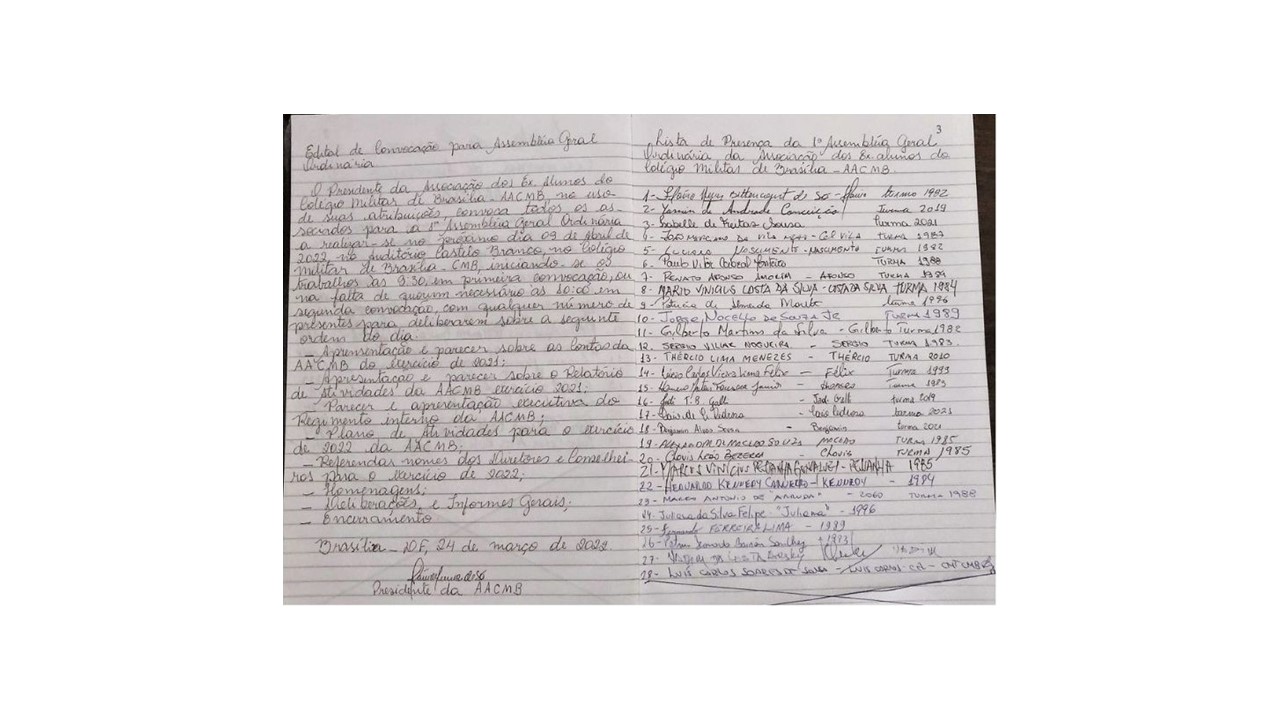 Edital de Convocação para Assembléia Geral
Ordinária
O Presidente da Associação dos Ex. Alunos do
Colégio Militar de Brasília - AACMB no uso
de suas atribuições, convoca todos os as-
sociados para a 1ª Assembléia Geral Ordinária
a realizar-se no próximo dia 09 de Abril de
2022, no Auditório Castelo Branco, no Colégio
Militar de Brasília - CMB, iniciando-se os
trabalhos às 9:30, em primeira convocação, ou
na falta de quorum necessário às 10:00 em
segunda convocação, com qualquer número de
presentes para deliberarem sobre a seguinte
ordem do dia:
- Apresentação e parecer sobre as Contas da
AACMB do exercício de 2021;
- Apresentação e parecer sobre o Relatório
de Atividades da AACMB exercício 2021;
- Parecer e apresentação executiva do
Regimento interno da AACMB;
- Plano de Atividades para o exercício
de 2022 da AACMB;
- Referendar nomes dos Diretores e Conselhei-
ros para o exercício de 2022;
- Homenagens;
- Deliberações, e Informes Gerais;
- Encerramento
Brasília - DF, 24 de março de 2022
Presidente da AACMB
3
Lista de Presença da 1ª Assembléia Geral
Ordinária da Associação dos Ex. alunos do
Colégio Militar de Brasília - AACMB.
1- Bittencourt de Sá - turma 1982
2- Yasmin de Andrade Conceição Turma 2019
3- Isabelle de Freitas Sousa turma 2021
4- - Cel Vila turma 1987
5- Nascimento - Nascimento turma 1982
6- Paulo Vitor Cabral turma 1988
7- Renato Afonso Amorim - Afonso turma 1984
8- MARIO VINICIUS COSTA DA SILVA - COSTA DA SILVA TURMA 1984
9- Patrícia de Almeida turma 1996
10- Jorge Nocello de Souza Jr turma 1989
11- Gilberto Martins da Silva - Gilberto Turma 1982
12- SERGIO VILLAR NOGUEIRA - SERGIO TURMA 1983.
13- THÉRCIO LIMA MENEZES - THÉRCIO TURMA 2010
14- Lúcio Vieira Lima Félix - Félix Turma 1993
15- Fonseca Junior - turma 1983
16- T.B. Galli - Galli turma 2019
17- - turma 2021
18- Benjamin Alves - Benjamin turma 2021
19- ALEXANDRE MACEDO SOUZA MACEDO TURMA 1985
20- Clovis Leão Bezerra - Clovis TURMA 1985
21- MARCUS VINICIUS PEÇANHA - PEÇANHA 1985
22- KENNEDY - KENNEDY - 1984
23- MARCO ANTONIO DE "ARRUDA" - TURMA 1988
24- Juliana da Silva Felipe - "Juliana" - 1996
25- Fernando FERREIRA LIMA - 1989
26- Leonardo
27- COSTA
28- LUIS CARLOS SOARES DE SOUSA - LUIS CARLOS - CEL - CMT CMB